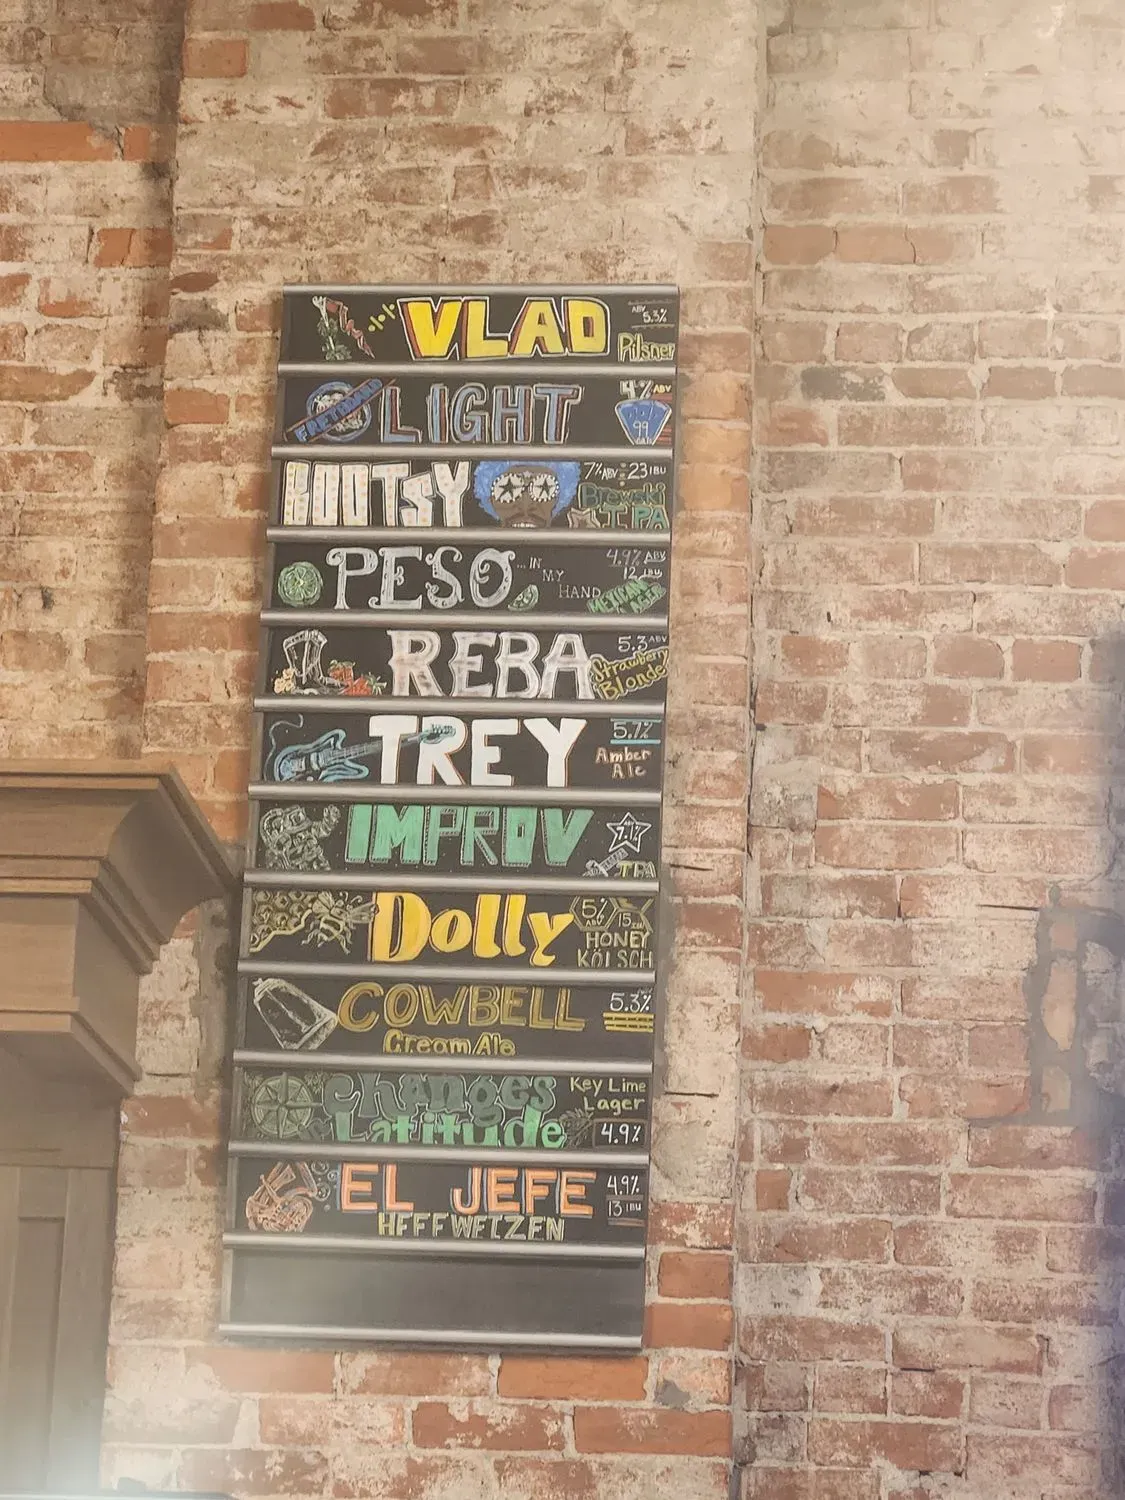 VLAD
ABV
5.3%
Pilsner
FRETBOARD
LIGHT
4% ABV
99
CAL
BOOTSY
7% ABV 23 IBU
Brewski
IPA
PESO ...IN
MY
HAND
4.9% ABV
12 IBU
MEXICAN
LAGER
REBA
5.3 ABV
Strawberry
Blonde
TREY
5.1%
Amber
Ale
IMPROV
ABV
7.1%
IPA
Dolly
5%
ABV
15
IBU
HONEY
KÖLSCH
COWBELL
5.3%
Cream Ale
Changes
Latitude
Key Lime
Lager
4.9%
EL JEFE
HEFEWEIZEN
4.9%
13 IBU